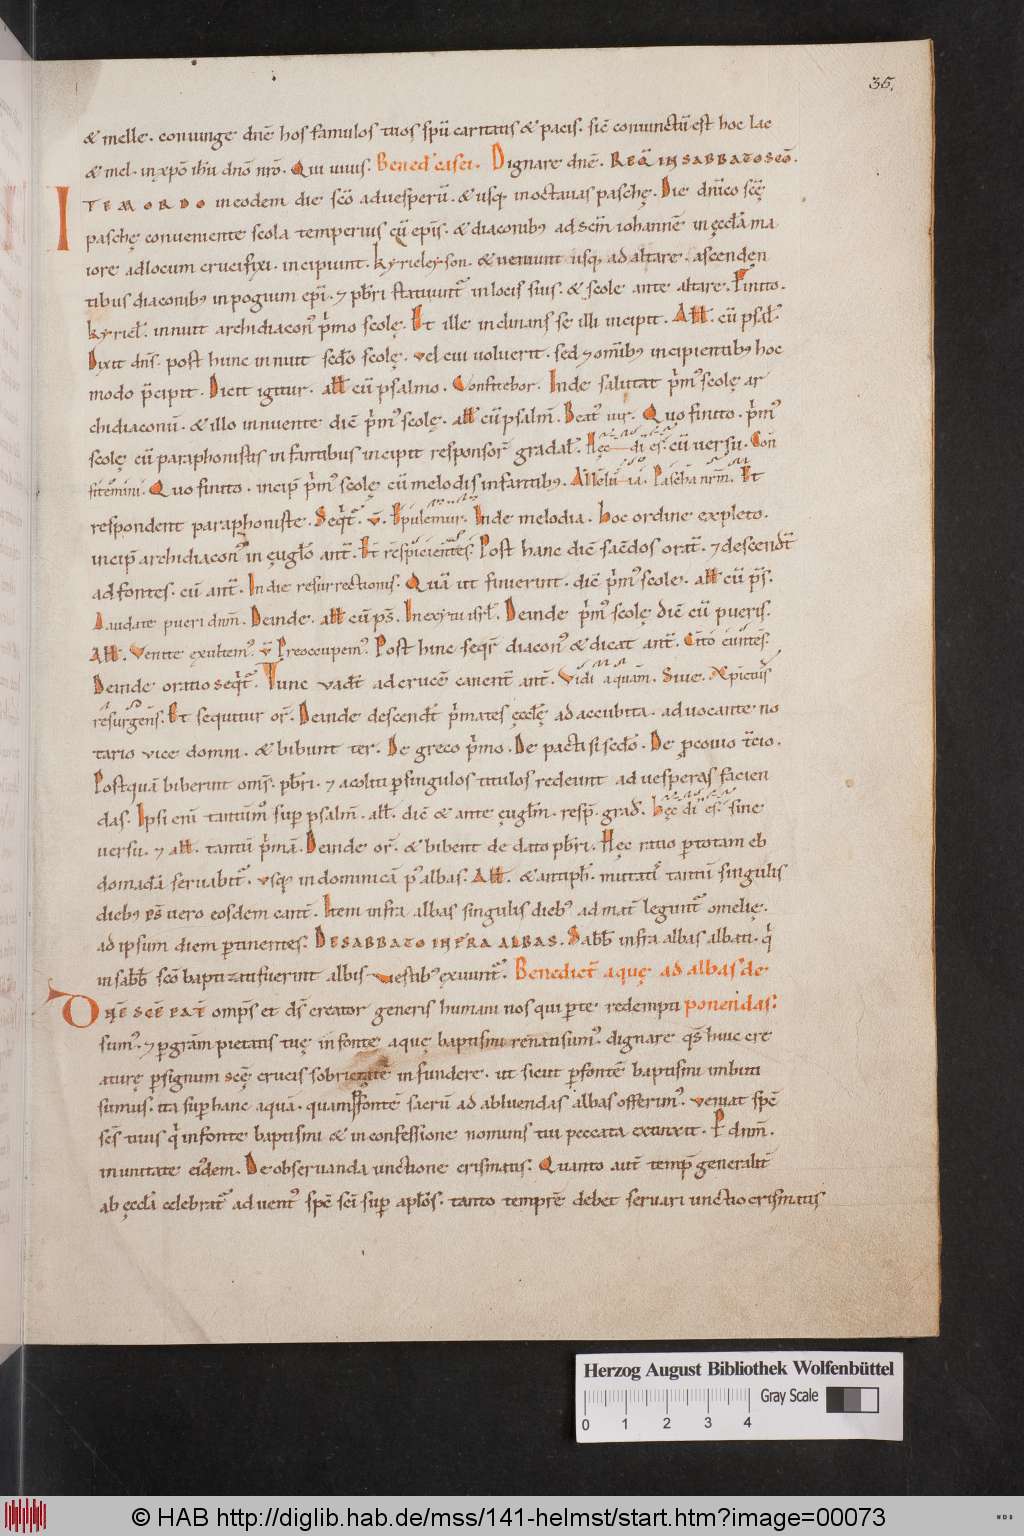 35.
& melle. coniunge dnē hos famulos tuos spū caritatis & pacis. sic̄ coniunctū est hoc lac
& mel. in xpō ihū dnō nrō. Qui uiuis. Bened̄ casei. Dignare dnē. REQ̄ IN SABBATO SCŌ.
ITEM ORDO in eodem die scō ad uesperū. & usq; in octauas paschę. Die dn̄ico scę̄
paschę conueniente scola temperius cū ep̄is. & diaconib; ad scm̄ iohannē in ęccła ma
iore ad locum crucifixi. incipiunt. kyrieleyson. & ueniunt usq; ad altare. ascenden
tibus diaconib; in pogium ep̄i. ⁊ p̄bri statuunt̄ in locis suis. & scole ante altare. Finito.
kyrieł. innuit archidiacon᾽ p̄mo scole. Et ille inclinans se illi incipit. Ałł. cū psał.
Dixit dn̄s. post hunc innuit scdo scolę. vel cui uoluerit. sed ⁊ omīb; incipientib; hoc
modo p̄cipit. Dicit igitur. ałł cū psalmo. Confitebor. Inde salutat p̄m᾽ scolę ar
chidiaconū. & illo innuente dic̄ p̄m᾽ scolę. ałł cū psalm̄. Beat᾽ uir. Quo finito. p̄m᾽
scolę cū paraphonistis infantibus incipit responsor̄ gradał. Hęc dies. cū versu. Con
fitemini. Quo finito. incip̄ p̄m᾽ scolę cū melodis infantib;. Alleluia. Pascha nrm̄. Et
respondent paraphoniste. Seq̄t̄. v̄. Epulemur. Inde melodia. hoc ordine expleto.
incip̄ archidiacon᾽ in ęugło ant̄. Et respicientes. Post hanc dic̄ sac̄dos orat̄. ⁊ descend̄t
ad fontes. cū ant̄. In die resurrectionis. Quā ut finierint. dic̄ p̄m᾽ scole. ałł cū ps̄.
Laudate pueri dnm̄. Deinde. ałł cū ps̄. In exitu isrł. Deinde p̄m᾽ scolę dic̄ cū pueris.
Ałł. Venite exultem᾽. v̄ Preoccupem᾽. Post hinc seqr̄ diacon᾽ & dicat ant̄. Cito euntes.
Deinde oratio seq̄t̄. Tunc vad̄t ad crucē canent̄ ant̄. Vidi aquam. Siue. Xpictus
resurgens. Et sequitur or̄. Deinde descend̄t p̄mates ęccłę ad accubita. aduocante no
tario vice domni. & bibunt ter. De greco p̄mo. De pactisi scdo. De p̄couio t̄cio.
Postquā biberint oms̄. p̄bri. ⁊ acoliti p̄ singulos titulos redeunt ad uesperas facien
das. Ipsi eni tantum᾽ sup̄ psalm̄. ałł. dic̄ & ante ęuglm̄. resp̄. grad̄. hęc dies. sine
versu. ⁊ ałł. tantū p̄mā. Deinde or̄. & bibent de dato p̄bri. Hęc ratio p̄ totam eb
domadā seruabit̄. vsq; in dominicā p᾽ albas. Ałł. & antiph̄. mutat̄ tantū singulis
dieb; ps̄ uero eosdem cant̄. Item infra albas singulis dieb᾽ ad mat̄ legunt̄ omelię.
ad ipsum diem p̄tinentes. DE SABBATO INFRA ALBAS. Sabb̄ infra albas albati. q̄
in sabb̄ scō baptizati fuerint albis vestib᾽ exuunt̄. Benedict̄ aquę ad albas de
DN̄E SCĒ PAT̄ omps̄ et ds̄ creator generis humani nos qui p̄ te redempti ponendas:
sum᾽. ⁊ p̄ grām pietatis tuę in fonte aquę baptismi renati sum᾽. dignare qs̄ huic cre
aturę p̄ signum scę̄ crucis sobrietatē infundere. ut sicut p̄ fontē baptismi imbuti
sumus. ita sup̄ hanc aquā. quam p̄ fontē sacrū ad abluendas albas offerim᾽. veniat spc̄
scs̄ tuus q̄ in fonte baptismi & in confessione nominis tui peccata extinxit. P dnm̄.
in unitate ei᾽dem. De obseruanda unctione crismatis. Quanto aut̄ temp̄ generalit̄
ab ęccła celebrat̄ aduent᾽ spc̄ sci sup̄ aplos̄. tanto tempr̄e debet seruari unctio crismatis
Herzog August Bibliothek Wolfenbüttel
Gray Scale
0 1 2 3 4
© HAB http://diglib.hab.de/mss/141-helmst/start.htm?image=00073